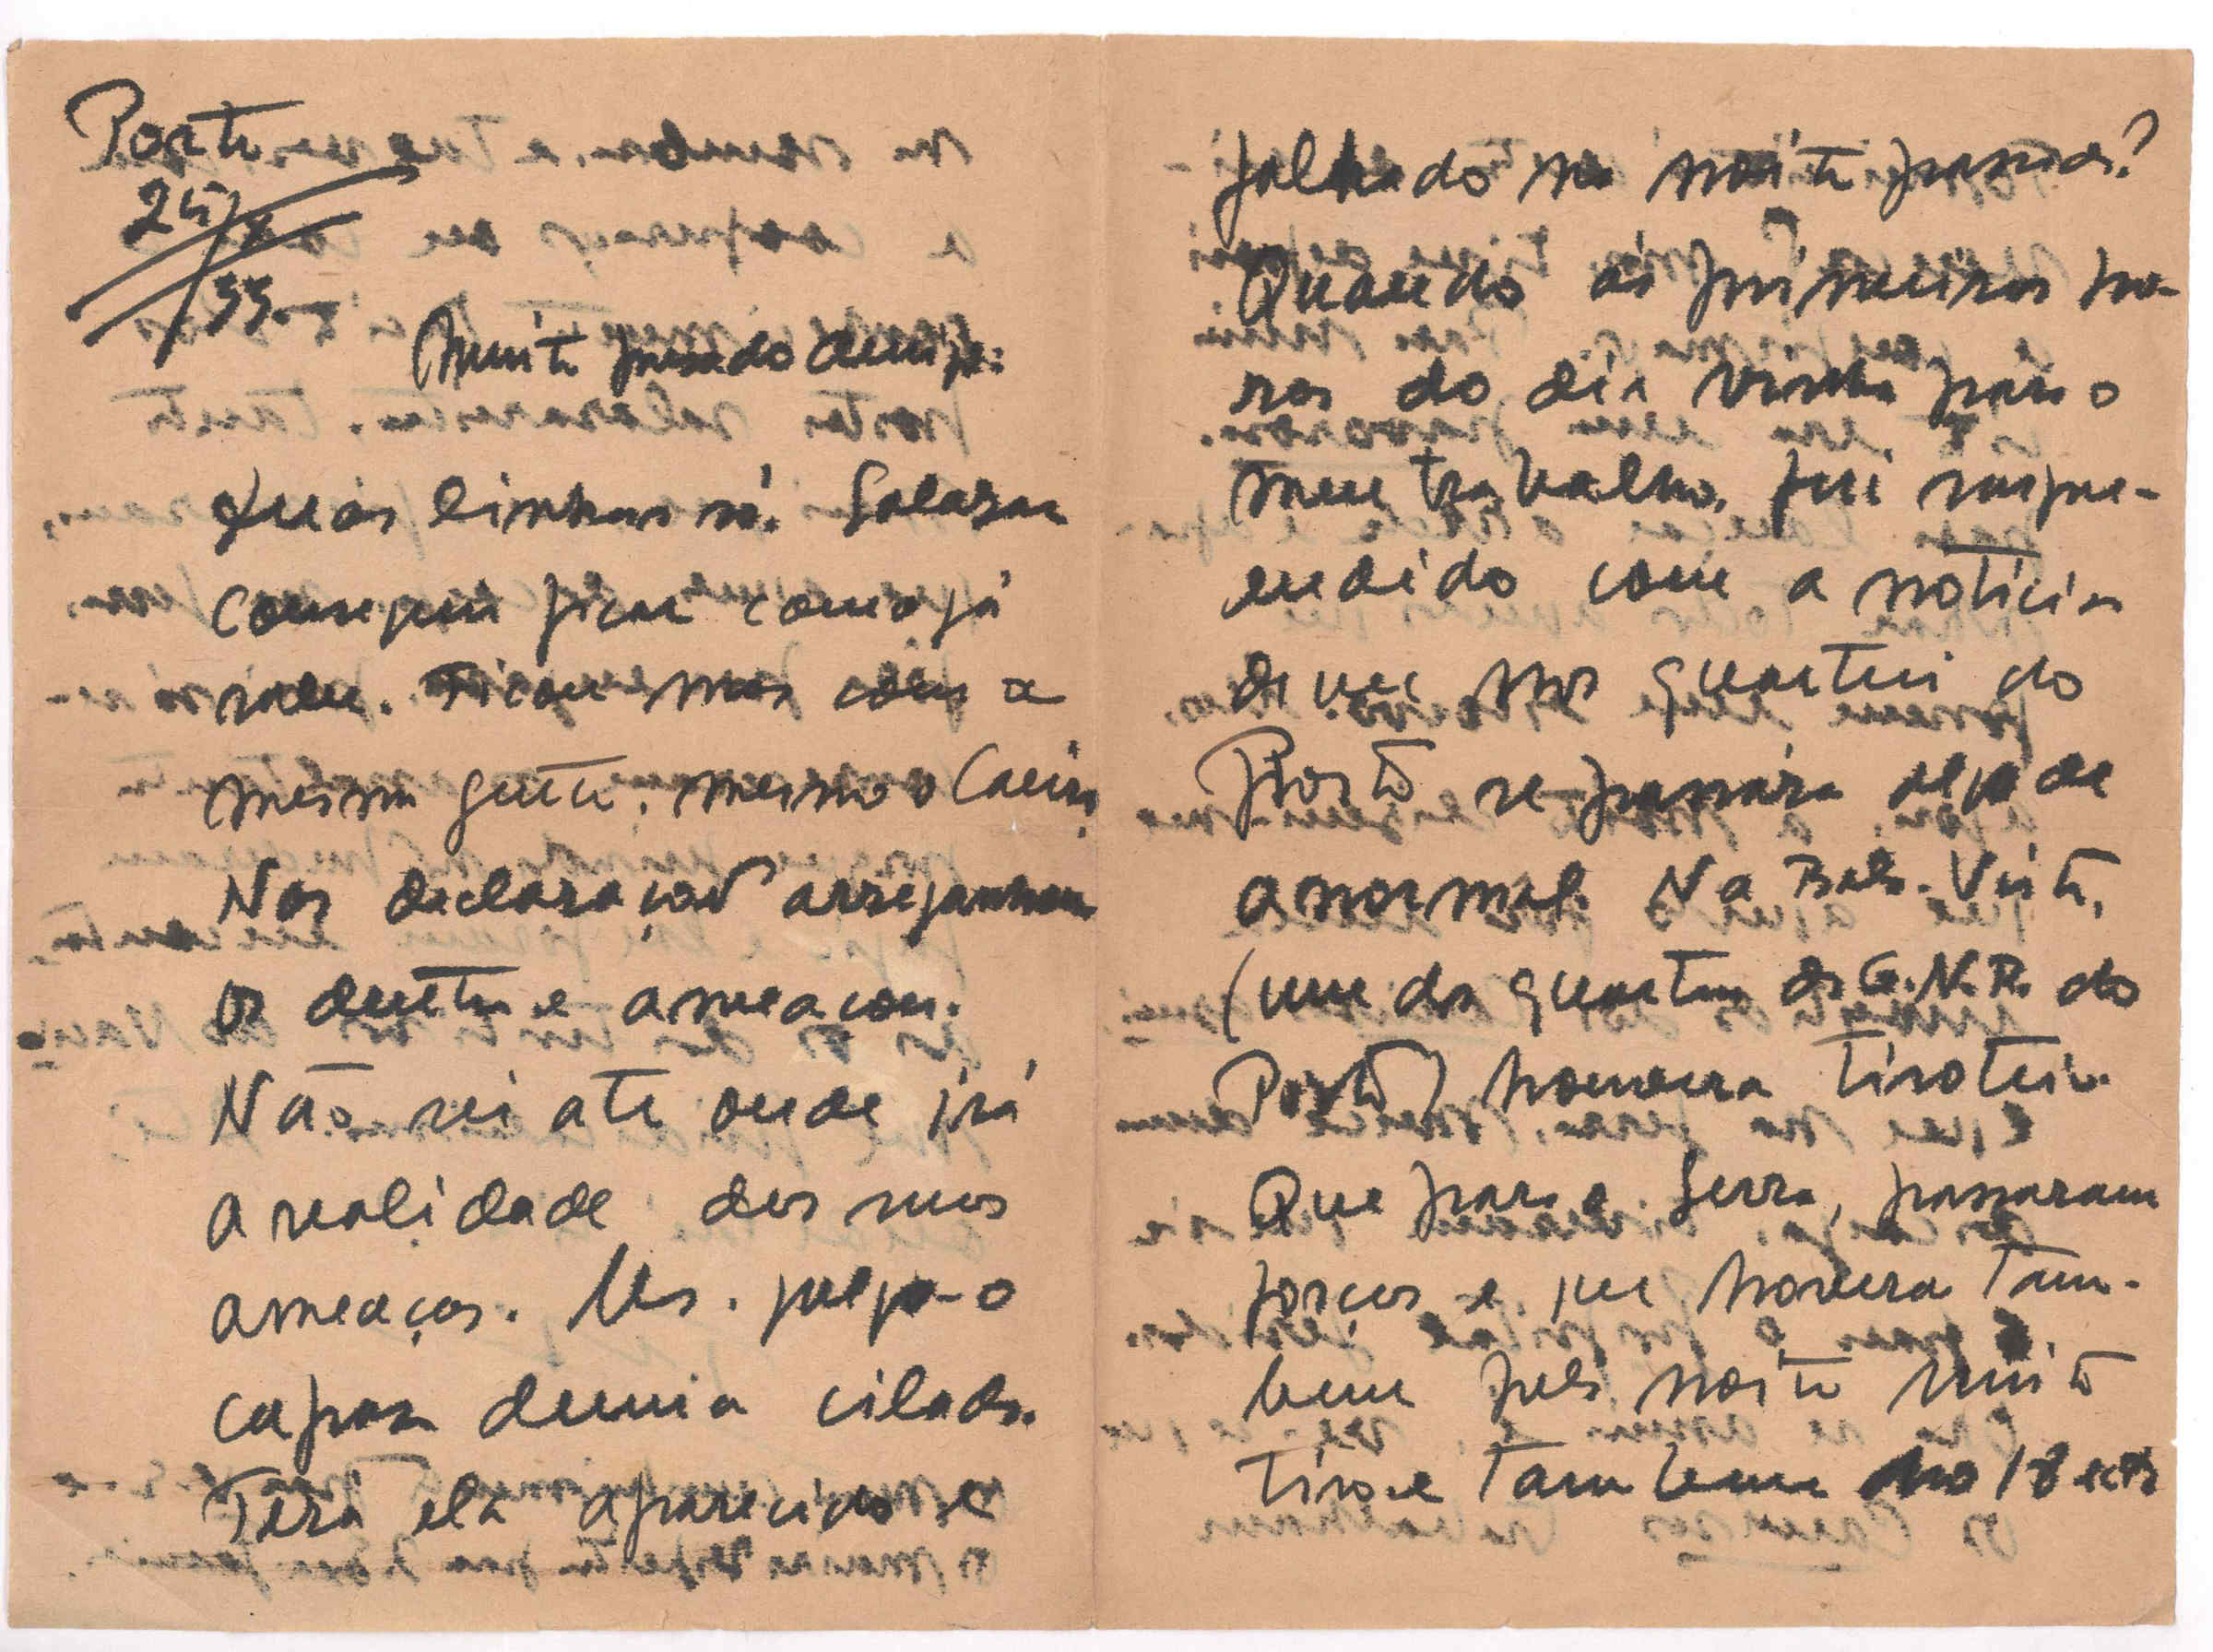 Porto
25/X
/33.
Muito presado amigo:
Duas linhas só. Salazar
conseguiu ficar como já
sabe. Ficou mas com a
mesma gente, mesmo o Caeiro.
Nas declarações arreganhou
os dentes e ameaçou.
Não sei até onde irá
a realidade das suas
ameaças. Mas. julgo-o
capaz duma cilada.
Terá ela aparecido e
falhado na noite passada?
Quando ás primeiras ho-
ras do dia vinha para o
meu trabalho, fui surpre-
endido com a noticia
de que nos quarteis do
Porto se passára algo de
anormal. Na Bela-Vista,
(um dos quarteis da G.N.R. do
Porto) houvera tiroteio.
Que para a Serra, passaram
forças e que houvera tam-
bem pela noite muito
tiro e tambem no 18 etc